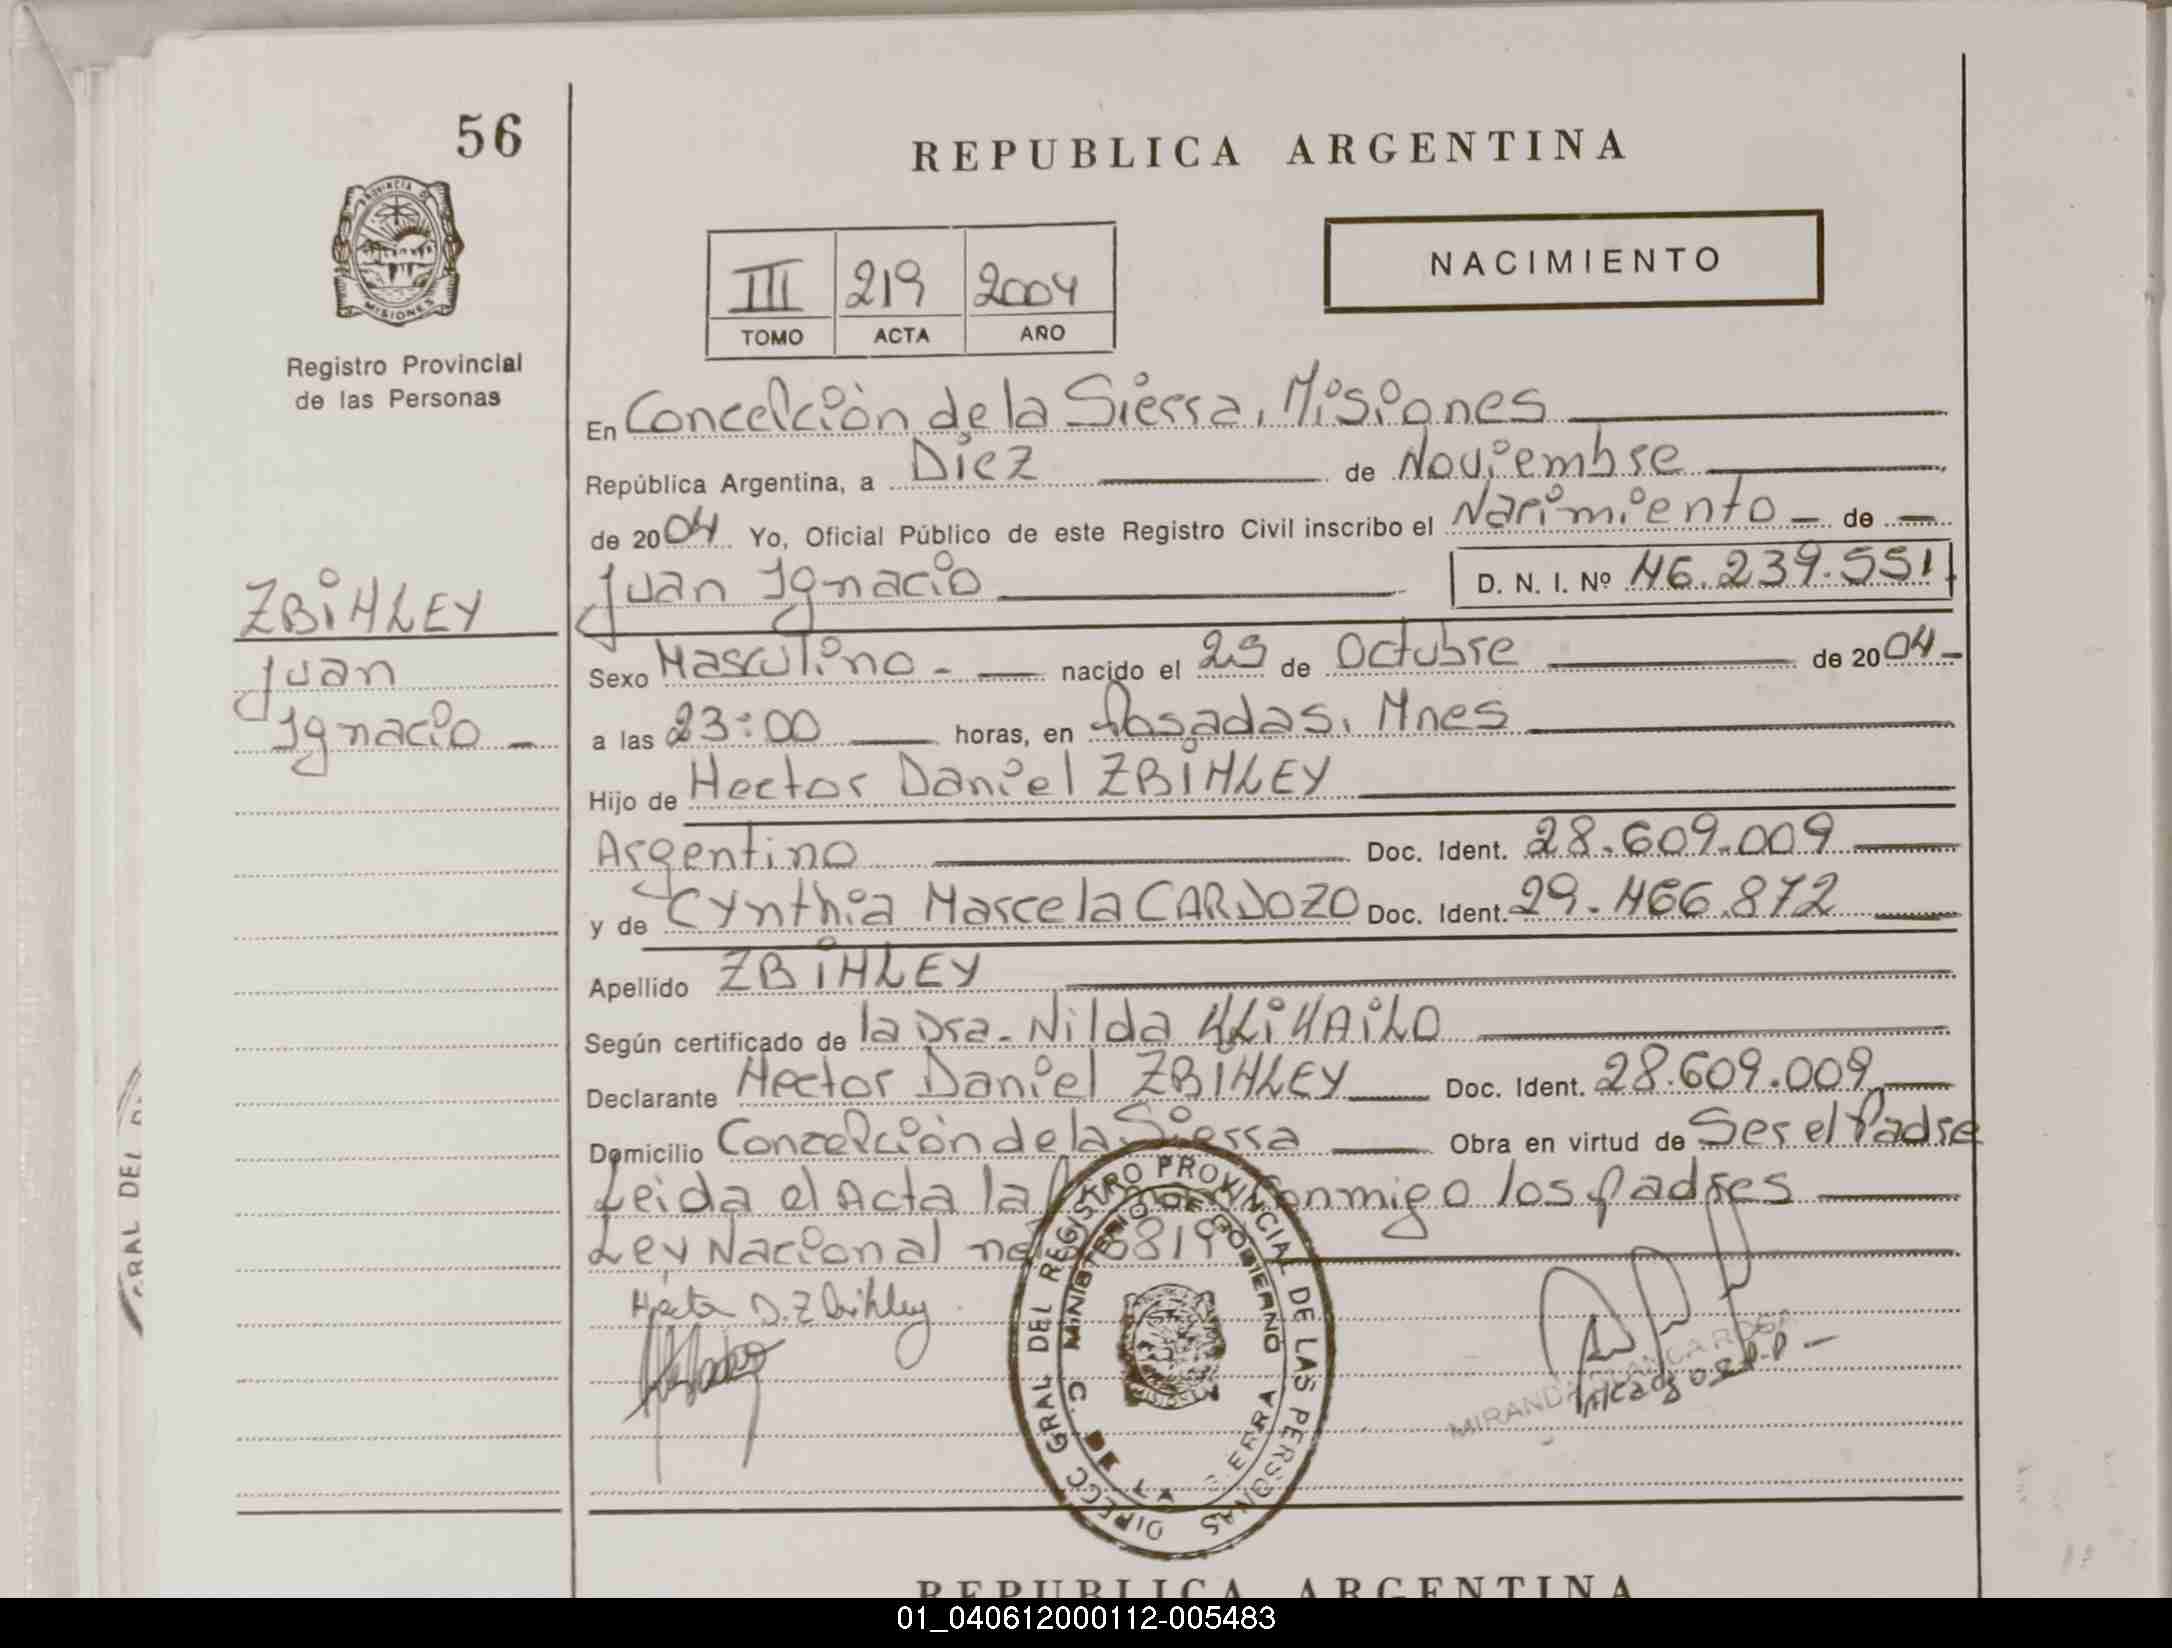 56
REPUBLICA ARGENTINA
PROVINCIA DE
MISIONES
Registro Provincial
de las Personas
III 219 2004
TOMO ACTA AÑO
NACIMIENTO
En Concepción de la Sierra, Misiones
República Argentina, a Diez de Noviembre
de 2004 Yo, Oficial Público de este Registro Civil inscribo el Nacimiento - de -
Juan Ignacio D. N. I. Nº 46.239.551
ZBIHLEY
Juan
Ignacio -
Sexo Masculino - nacido el 29 de Octubre de 2004-
a las 23:00 horas, en Posadas, Mnes
Hijo de Hector Daniel ZBIHLEY
Argentino Doc. Ident. 28.609.009
y de Cynthia Marcela CARDOZO Doc. Ident. 29.466.872
Apellido ZBIHLEY
Según certificado de la Dra. Nilda
Declarante Hector Daniel ZBIHLEY Doc. Ident. 28.609.009
Domicilio Concepción de la Sierra Obra en virtud de Ser el Padre
Leida el Acta la conmigo los Padres
Ley Nacional
Hector D. Zbihley
DIRECC GRAL DEL REGISTRO PROVINCIAL DE LAS PERSONAS
MINISTERIO DE GOBIERNO
C. DE LA
MIRANDA BLANCA ROSA
GRAL DEL
REPUBLICA ARGENTINA
01_040612000112-005483